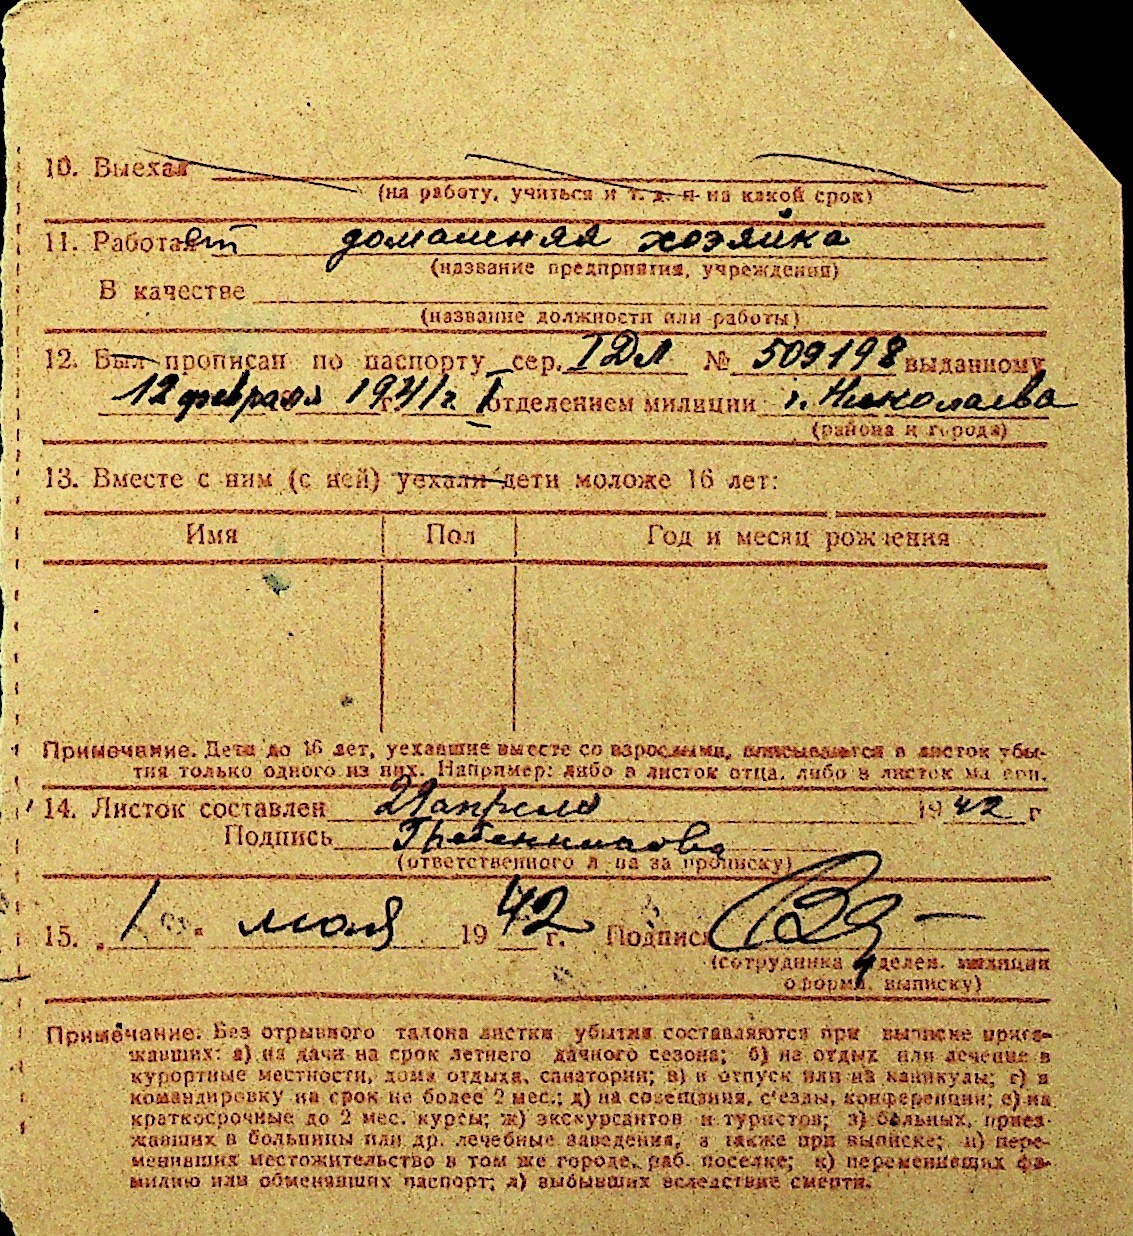 10. Выехал
(на работу, учиться и т. д. и на какой срок)
11. Работает домашняя хозяйка
(название предприятия, учреждения)
В качестве
(название должности или работы)
12. Был прописан по паспорту сер. IДЛ № 509198 выданному
12 февраля 1941 г. I отделением милиции г. Николаева
(района и города)
13. Вместе с ним (с ней) уехали дети моложе 16 лет:
Имя Пол Год и месяц рождения
Примечание. Дети до 16 лет, уехавшие вместе со взрослыми, вписываются в листок убы-
тия только одного из них. Например: либо в листок отца, либо в листок матери.
14. Листок составлен 29 апреля 1942 г
Подпись
(ответственного л-ца за прописку)
15. „1" мая 1942 г. Подпись
(сотрудника отделен. милиции
оформ. выписку)
Примечание: Без отрывного талона листки убытия составляются при выписке приез-
жавших: а) на дачи на срок летнего дачного сезона; б) на отдых или лечение в
курортные местности, дома отдыха, санатории; в) в отпуск или на каникулы; г) в
командировку на срок не более 2 мес.; д) на совещания, с'езды, конференции; е) на
краткосрочные до 2 мес. курсы; ж) экскурсантов и туристов; з) больных, приез-
жавших в больницы или др. лечебные заведения, а также при выписке; и) пере-
менивших местожительство в том же городе, раб. поселке; к) переменивших фа-
милию или обменявших паспорт; л) выбывших вследствие смерти.